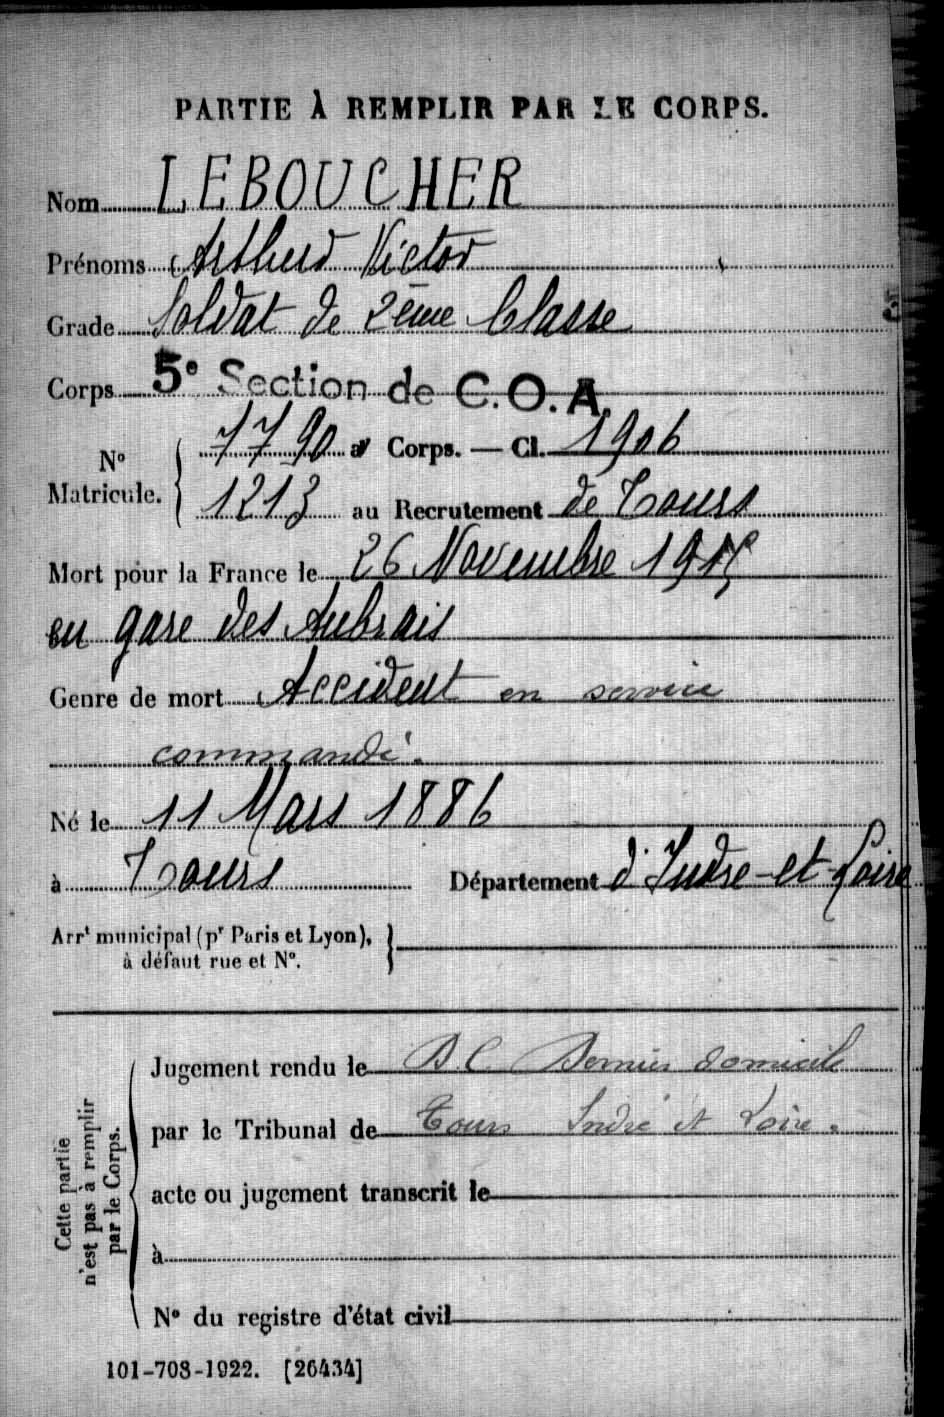 PARTIE À REMPLIR PAR LE CORPS.
Nom LEBOUCHER
Prénoms Arthur Victor
Grade Soldat de 2ème Classe
Corps 5e Section de C.O.A.
N° Matricule. 7790 au Corps. — Cl. 1906
1213 au Recrutement de Tours
Mort pour la France le 26 Novembre 1915
en gare des Aubrais
Genre de mort Accident en service
commandé.
Né le 11 Mars 1886
à Tours Département d'Indre-et-Loire
Arrt municipal (pr Paris et Lyon),
à défaut rue et N°.
Cette partie n'est pas à remplir par le Corps.
Jugement rendu le D.C. Dernier domicile
par le Tribunal de Tours Indre et Loire.
acte ou jugement transcrit le
à
N° du registre d'état civil
101-708-1922. [26434]